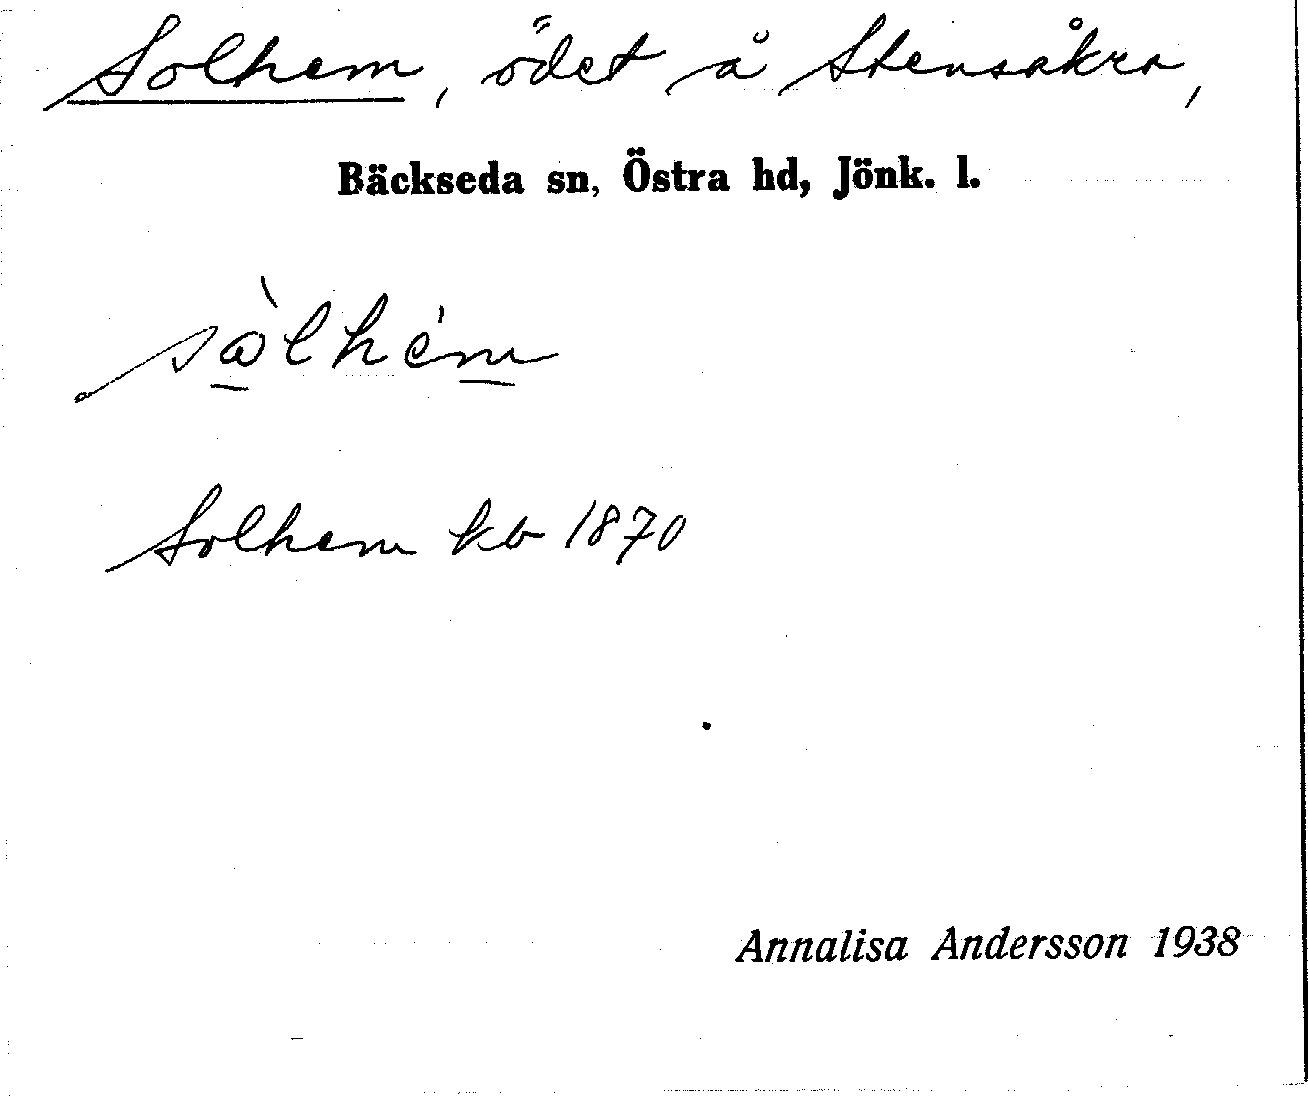 Solhem, ödet å Stensåkra,
Bäckseda sn, Östra hd, Jönk. l.
Solhem kb 1870
Annalisa Andersson 1938